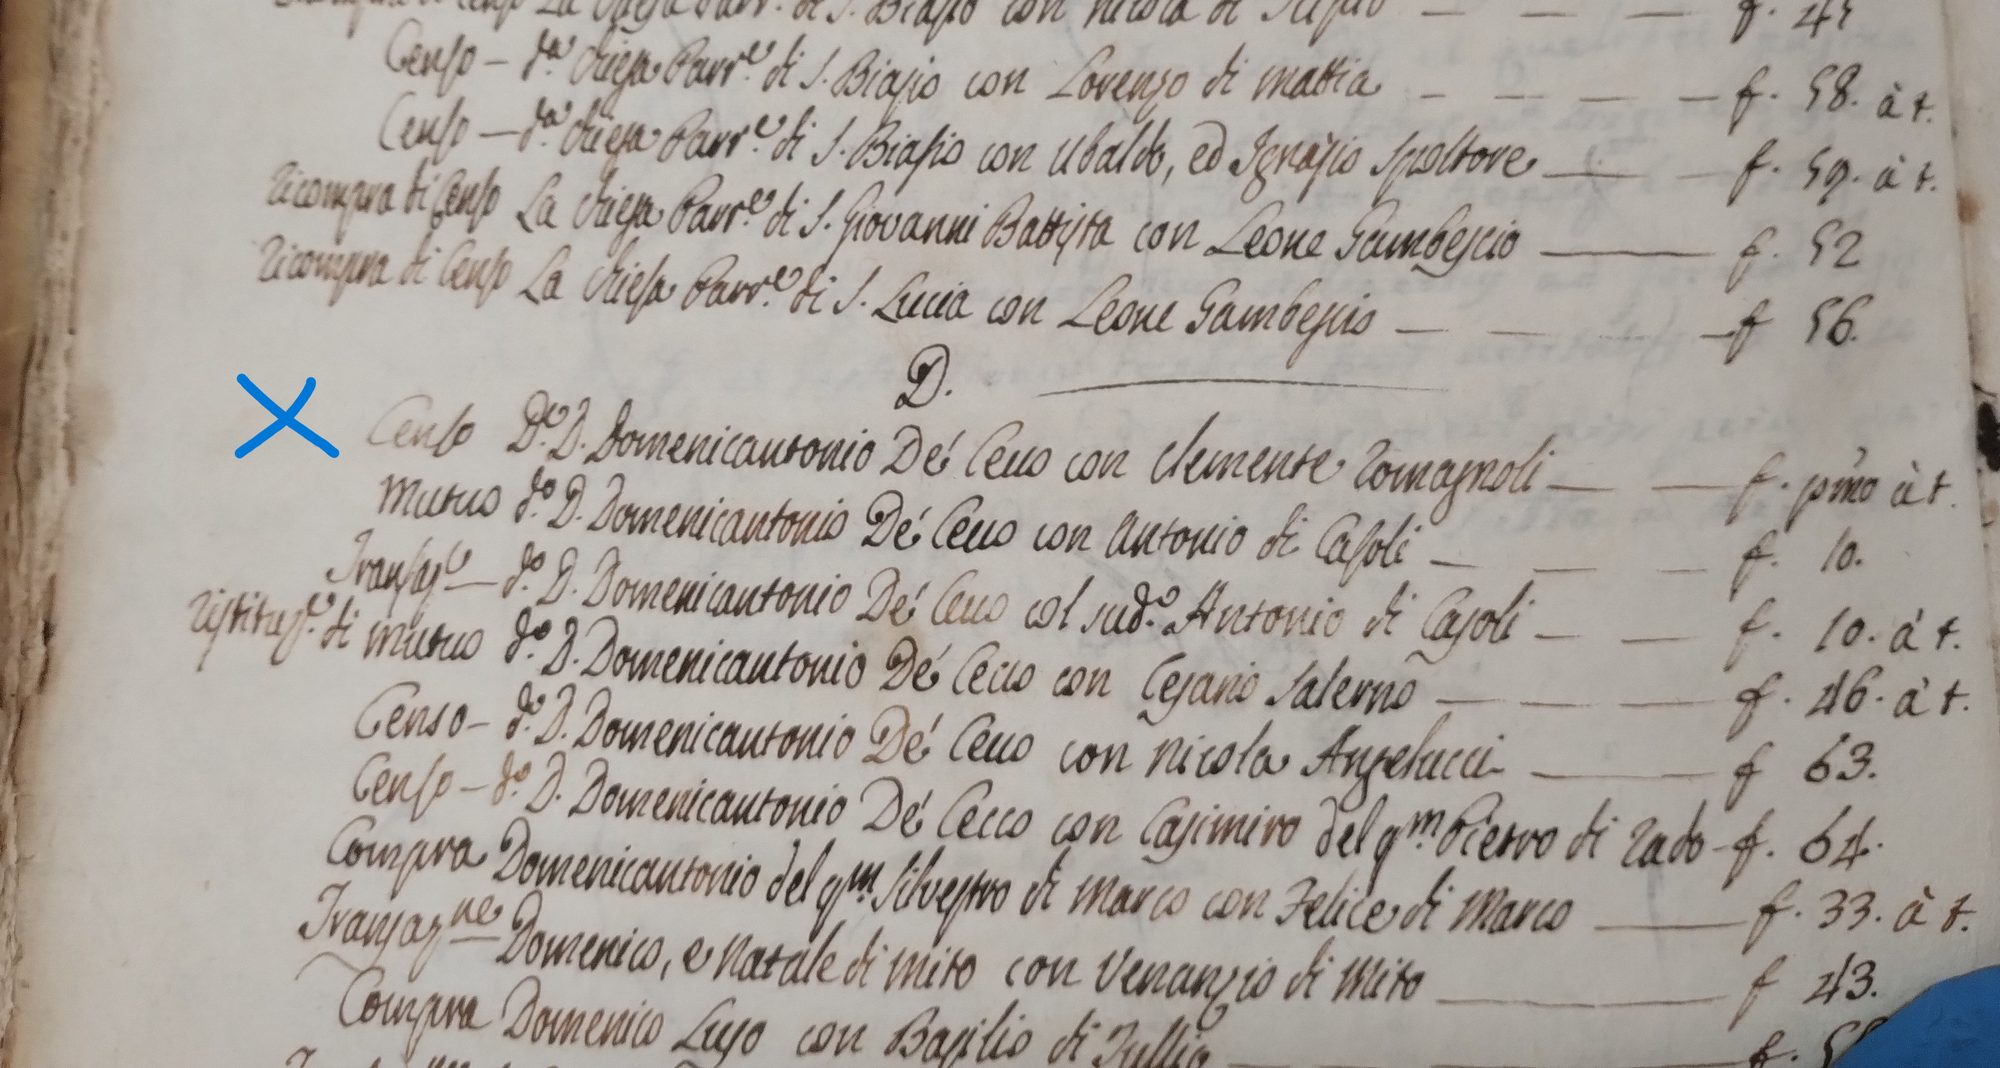 Ricompra di Censo La Chiesa Parr.e di S. Biasio con Nicola di — — — f. 45
Censo – d.a Chiesa Parr.e di S. Biasio con Lorenzo di Mattia – – – – f. 58. à t.
Censo – d.a Chiesa Parr.e di S. Biasio con Ubaldo, ed Ignazio Spoltore — — f. 59. à t.
Ricompra di Censo La Chiesa Parr.e di S. Giovanni Battista con Leone Gambescio — f. 52
Ricompra di Censo La Chiesa Parr.e di S. Lucia con Leone Gambescio — — — f 56.
D.
Censo D.o D. Domenicantonio De' Cecco con Clemente Romagnoli — — f. p'mo à t.
Mutuo d.o D. Domenicantonio De' Cecco con Antonio di Casoli — — — f. 10.
Transaz.e — d.o D. Domenicantonio De' Cecco col sud.o Antonio di Casoli — — f. 10. à t.
Ristituz.e di Mutuo d.o D. Domenicantonio De' Cecco con Cesario Salerno — — — f. 46. à t.
Censo – d.o D. Domenicantonio De' Cecco con Nicola Angelucci — f 63.
Censo – d.o D. Domenicantonio De' Cecco con Casimiro del qm. Pietro di Rado – f. 64.
Compra Domenicantonio del qm. Silvestro di Marco con Felice di Marco — f. 33. à t.
Transazne Domenico, e Natale di Mito con Venanzio di Mito — f 43.
Compra Domenico Luso con Basilio di Tullio — f.